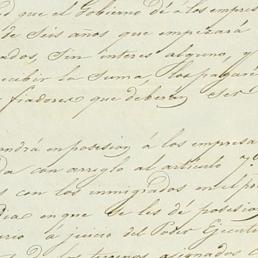 que el Gobierno dé a los empres
de Seis años que empezará
ados, Sin interes alguno, y
recibir la Suma, los pagaré
fiadores que deberán ser
ndrá en posesion á los empresa
da con arreglo al articulo
s con los inmigrados en el po
dia en que se les dé posesion
ario á juicio del Poder Ejecuti
los terrenos asignados